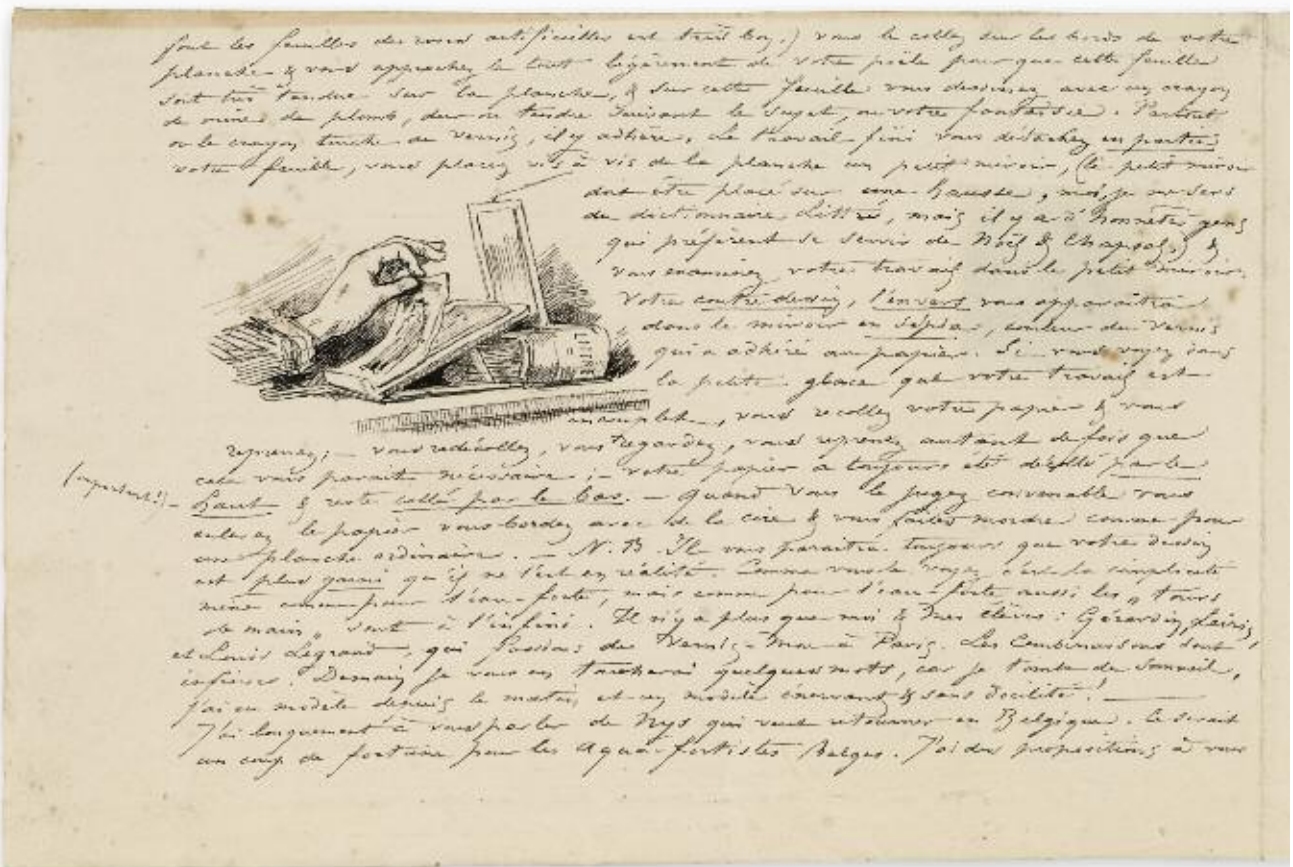 font les feuilles de roses artificielles est très bon.) vous le collez sur les bords de votre
planche & vous approchez le tout légèrement de votre poële pour que cette feuille
soit très tendue sur la planche, & sur cette feuille vous dessinez avec un crayon
de mine de plomb, dur ou tendre suivant le sujet, ou votre fantaisie. Partout
où le crayon touche le vernis, il y adhère. Le travail fini vous détachez en partie
votre feuille, vous placez vis à vis de la planche un petit miroir, (le petit miroir
doit être placé sur une hausse, moi, je me sers
du dictionnaire Littré, mais il y a d'honnêtes gens
qui préfèrent se servir de Noël & Chapsal,) &
vous examinez votre travail dans le petit miroir.
Votre contre dessin, l'envers vous apparaîtra
dans le miroir en sépia, couleur du vernis
qui a adhéré au papier. Si vous voyez dans
la petite glace que votre travail est
LITTRE
incomplet, vous recollez votre papier & vous
reprenez; – vous redécollez, vous regardez, vous reprenez autant de fois que
cela vous paraît nécessaire; – votre papier a toujours été décollé par le
(important!) – haut & reste collé par le bas. – Quand vous le jugez convenable vous
enlevez le papier vous bordez avec de la cire & vous faites mordre comme pour
une planche ordinaire. – N.B. Il vous paraîtra toujours que votre dessin
est plus garni qu'il ne l'est en réalité. Comme vous le voyez c'est la simplicité
même comme pour l'eau-forte, mais comme pour l'eau-forte aussi les „tours
de main„ vont à l'infini. Il n'y a plus que moi & mes élèves: Gérardin,
et Louis Legrand, qui fassions du Vernis-Mou à Paris. Les Combinaisons sont
infinies. Demain je vous en toucherai quelques mots, car je tombe de sommeil,
j'ai eu modèle depuis le matin, et un modèle énervant & sans docilité!
J'ai longuement à vous parler de Nys qui veut retourner en Belgique. Ce serait
un coup de fortune pour les Aqua-fortistes Belges. J'ai des propositions à vous